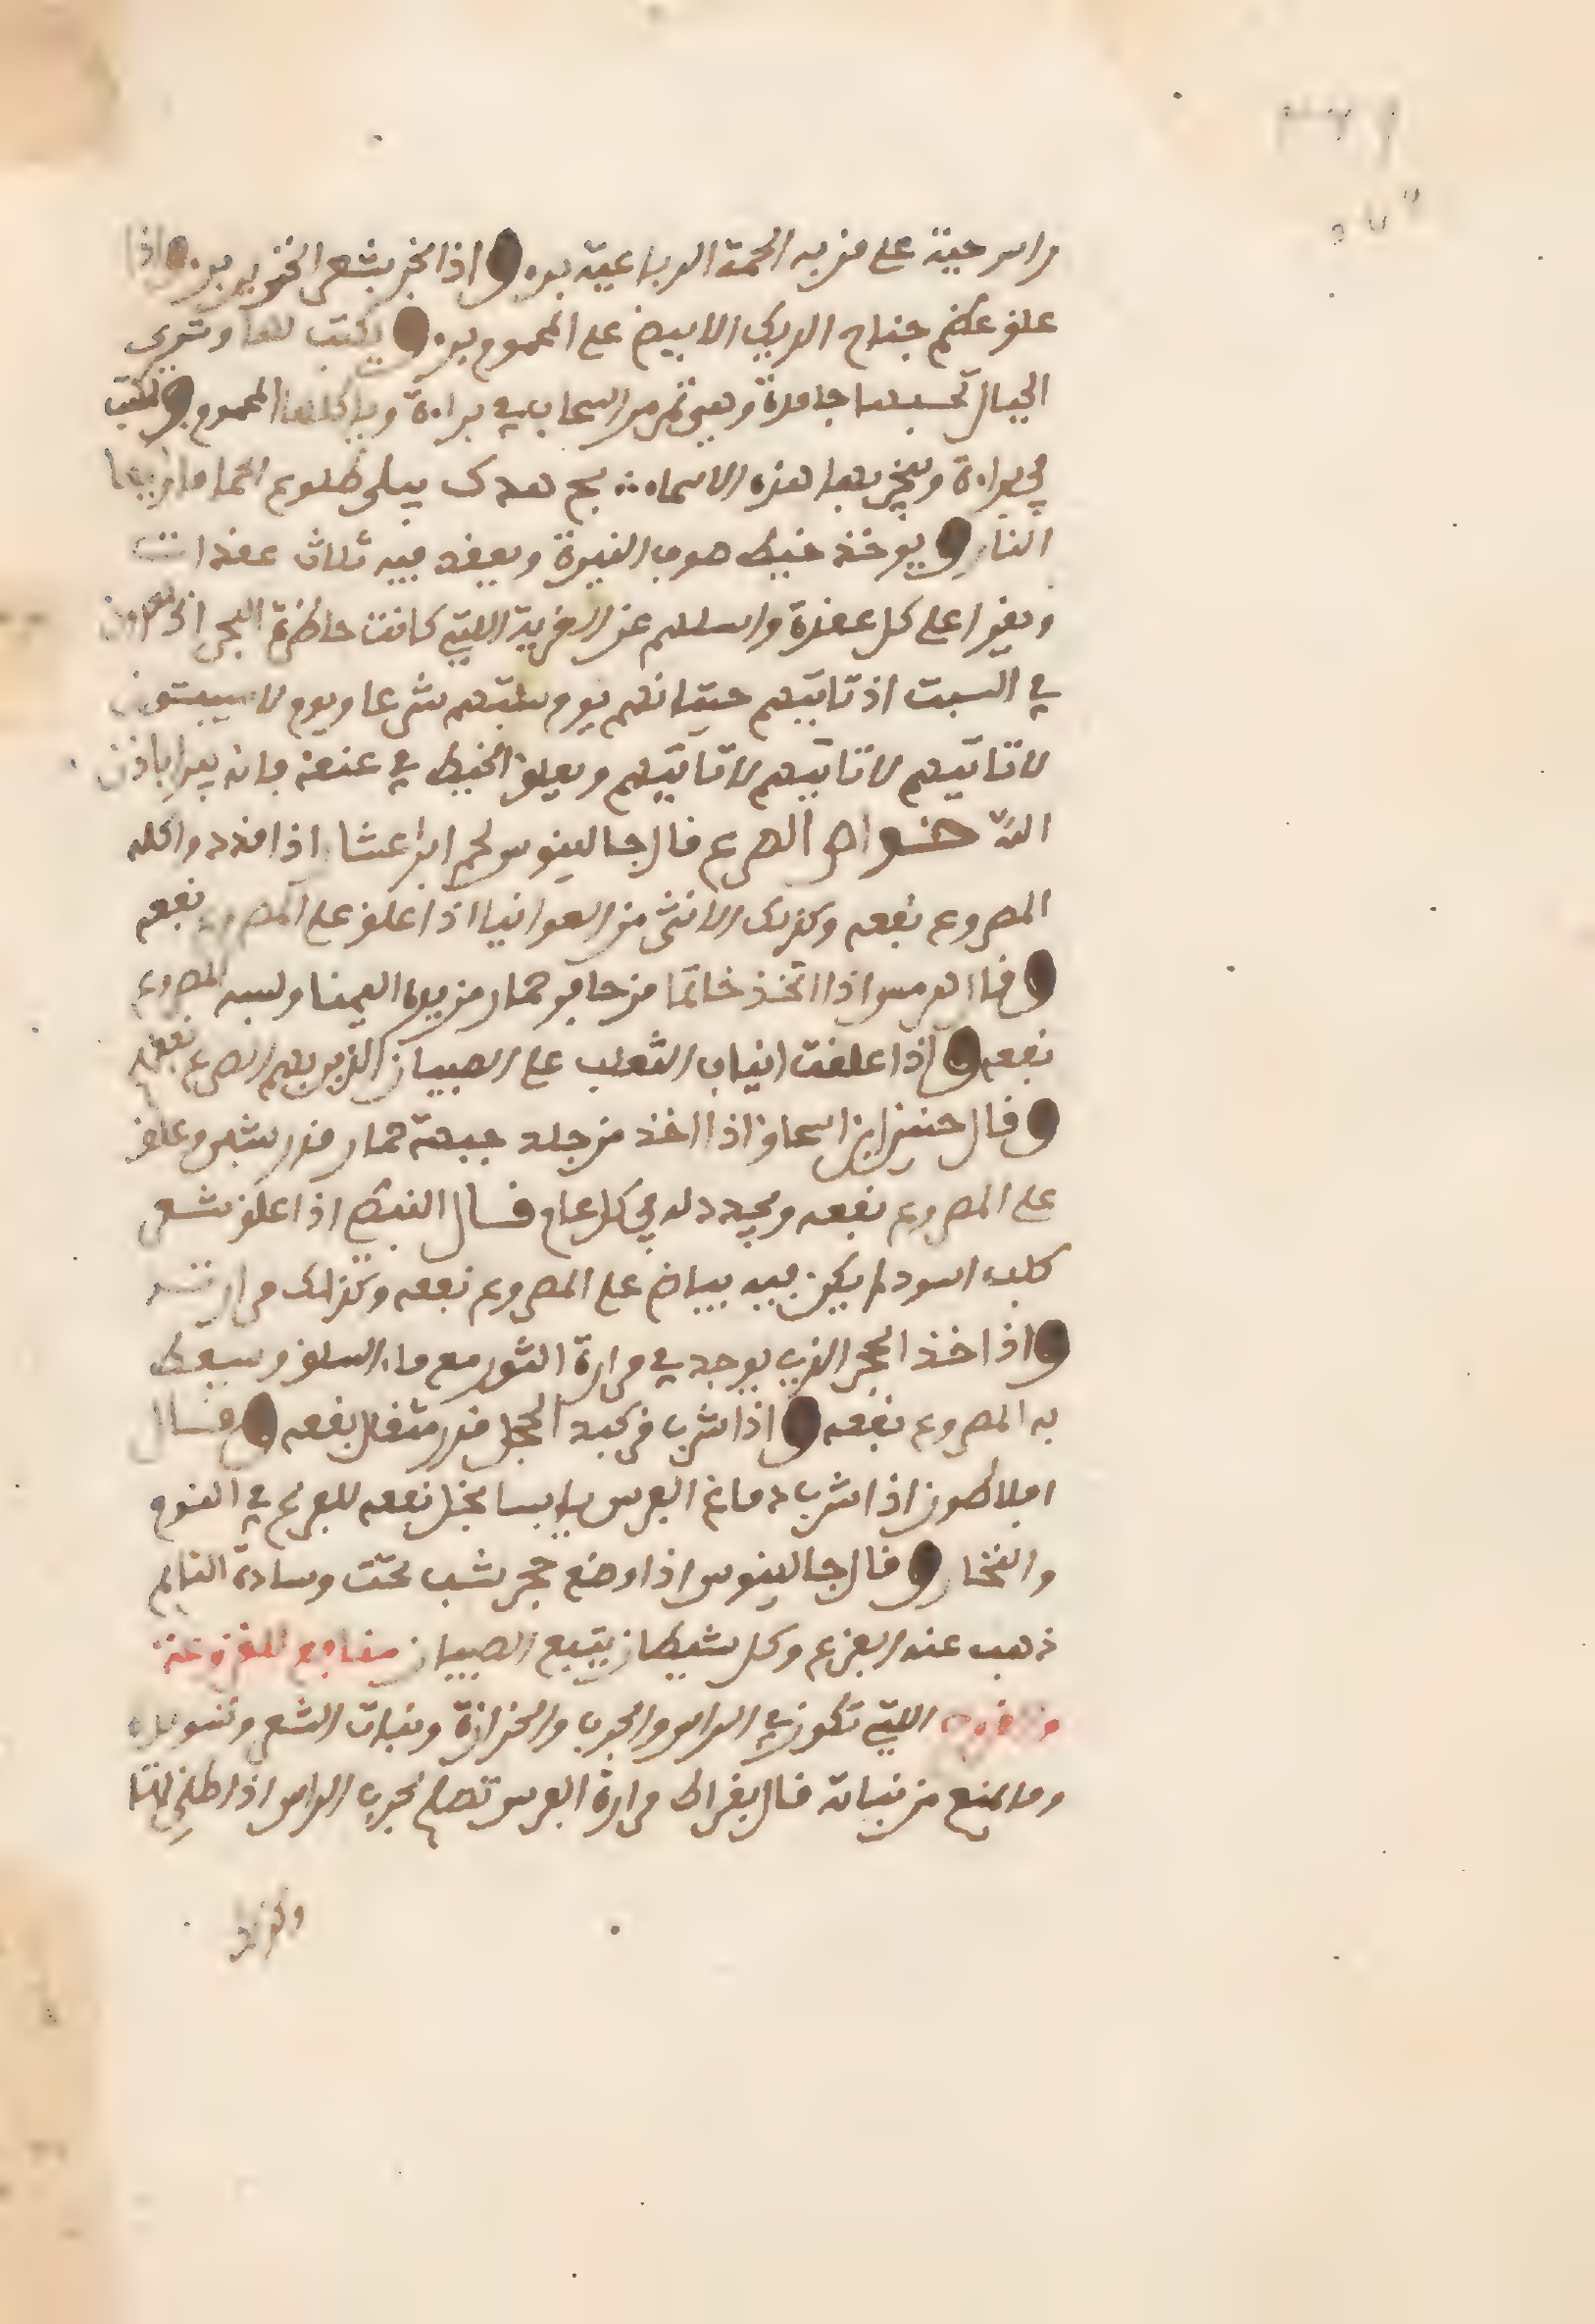 وراس حية على من به الحمة الرباعية برء واذا بخر بشعر الخنزير برء واذا
علق عظم جناح الديك الابيض على المحموم برء ويكتب لها وترى
الجبال تحسبها جامدة وهي تمر مر السحاب في براءة وياكلها المحموم ويكتب
في براءة ويبخر بها هذه الاسماء
النار ويوخذ خيط صوف النيرة ويعقد فيه ثلاث عقدات
ويقرا على كل عقدة واسللهم عن القرية اللتي كانت حاظرة البحر اذ يعدون
في السبت اذ تاتيهم حيتانهم يوم سبتهم شرعا ويوم لا يسبتون
لا تاتيهم لا تاتيهم لا تاتيهم ويعلق الخيط في عنقه فانه يبرا باذن
الله خواص الصرع قال جالينوس لحم ابن اذا قدد واكله
المصروع نفعه وكذلك الانثى من اذا علق على المصروع نفعه
وقال هرمس اذا اتخذ خاتما من حافر حمار من يده اليمنا ولبسه المصروع
نفعه واذا علقت انياب الثعلب على الصبيان الذين بهم الصرع نفعهم
وقال حنين ابن اسحاق اذا اخذ من جلد جبهة حمار قدر شبر وعلق
على المصروع نفعه ويجدد له في كل عام قال اذا علق شعر
كلب اسود لم يكن فيه بياض على المصروع نفعه وكذلك مرارته
واذا اخذ الحجر الذي يوجد في مرارة الثور مع ماء السلق ويسعط
به المصروع نفعه واذا شرب من كبد الحجل قدر مثقال نفعه وقال
افلاطون اذا شرب دماغ العرس يابسا بخل نفعه للفزع في النوم
والفخار وقال جالينوس اذا وضع حجر شب تحت وسادة النايم
ذهب عنه الفزع وكل شيطان يتبع الصبيان منافع
والقروح اللتي تكون في الراس والجرب والحزازة ونبات الشعر وتسويده
وما يمنع من نباته قال بقراط مرارة العرس تصلح لجرب الراس اذا طلي بها
وكذلك